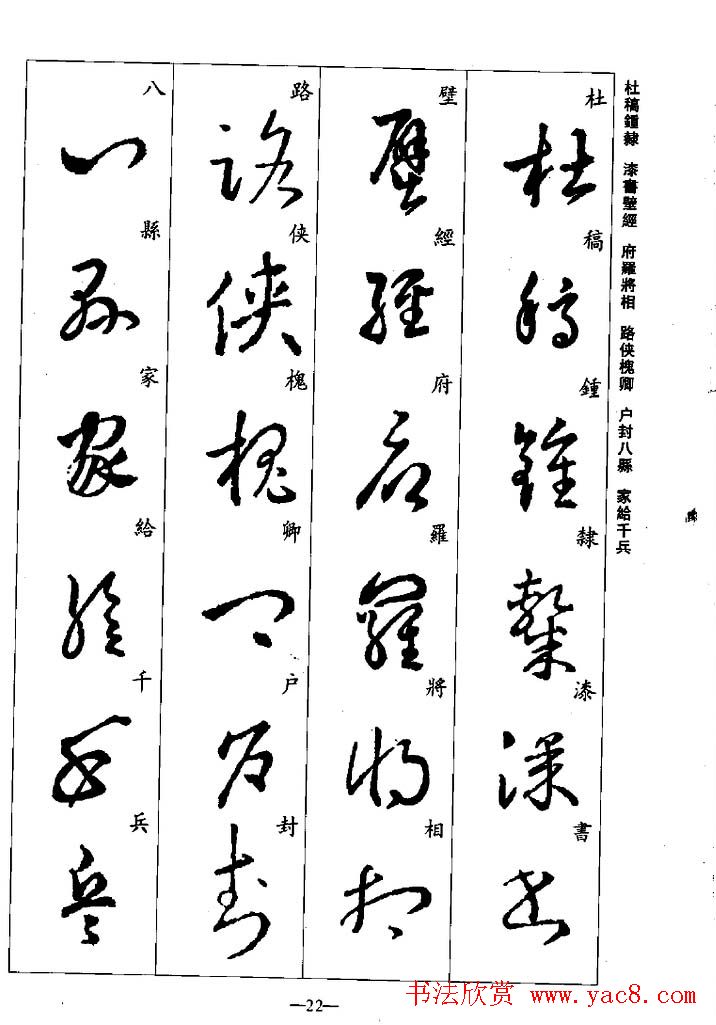 杜稿鍾隸　漆書壁經　府羅將相　路俠槐卿　户封八縣　家給千兵
杜稿鍾隸漆書
壁經府羅將相
路俠槐卿户封
八縣家給千兵
—22—
书法欣赏 www.yac8.com